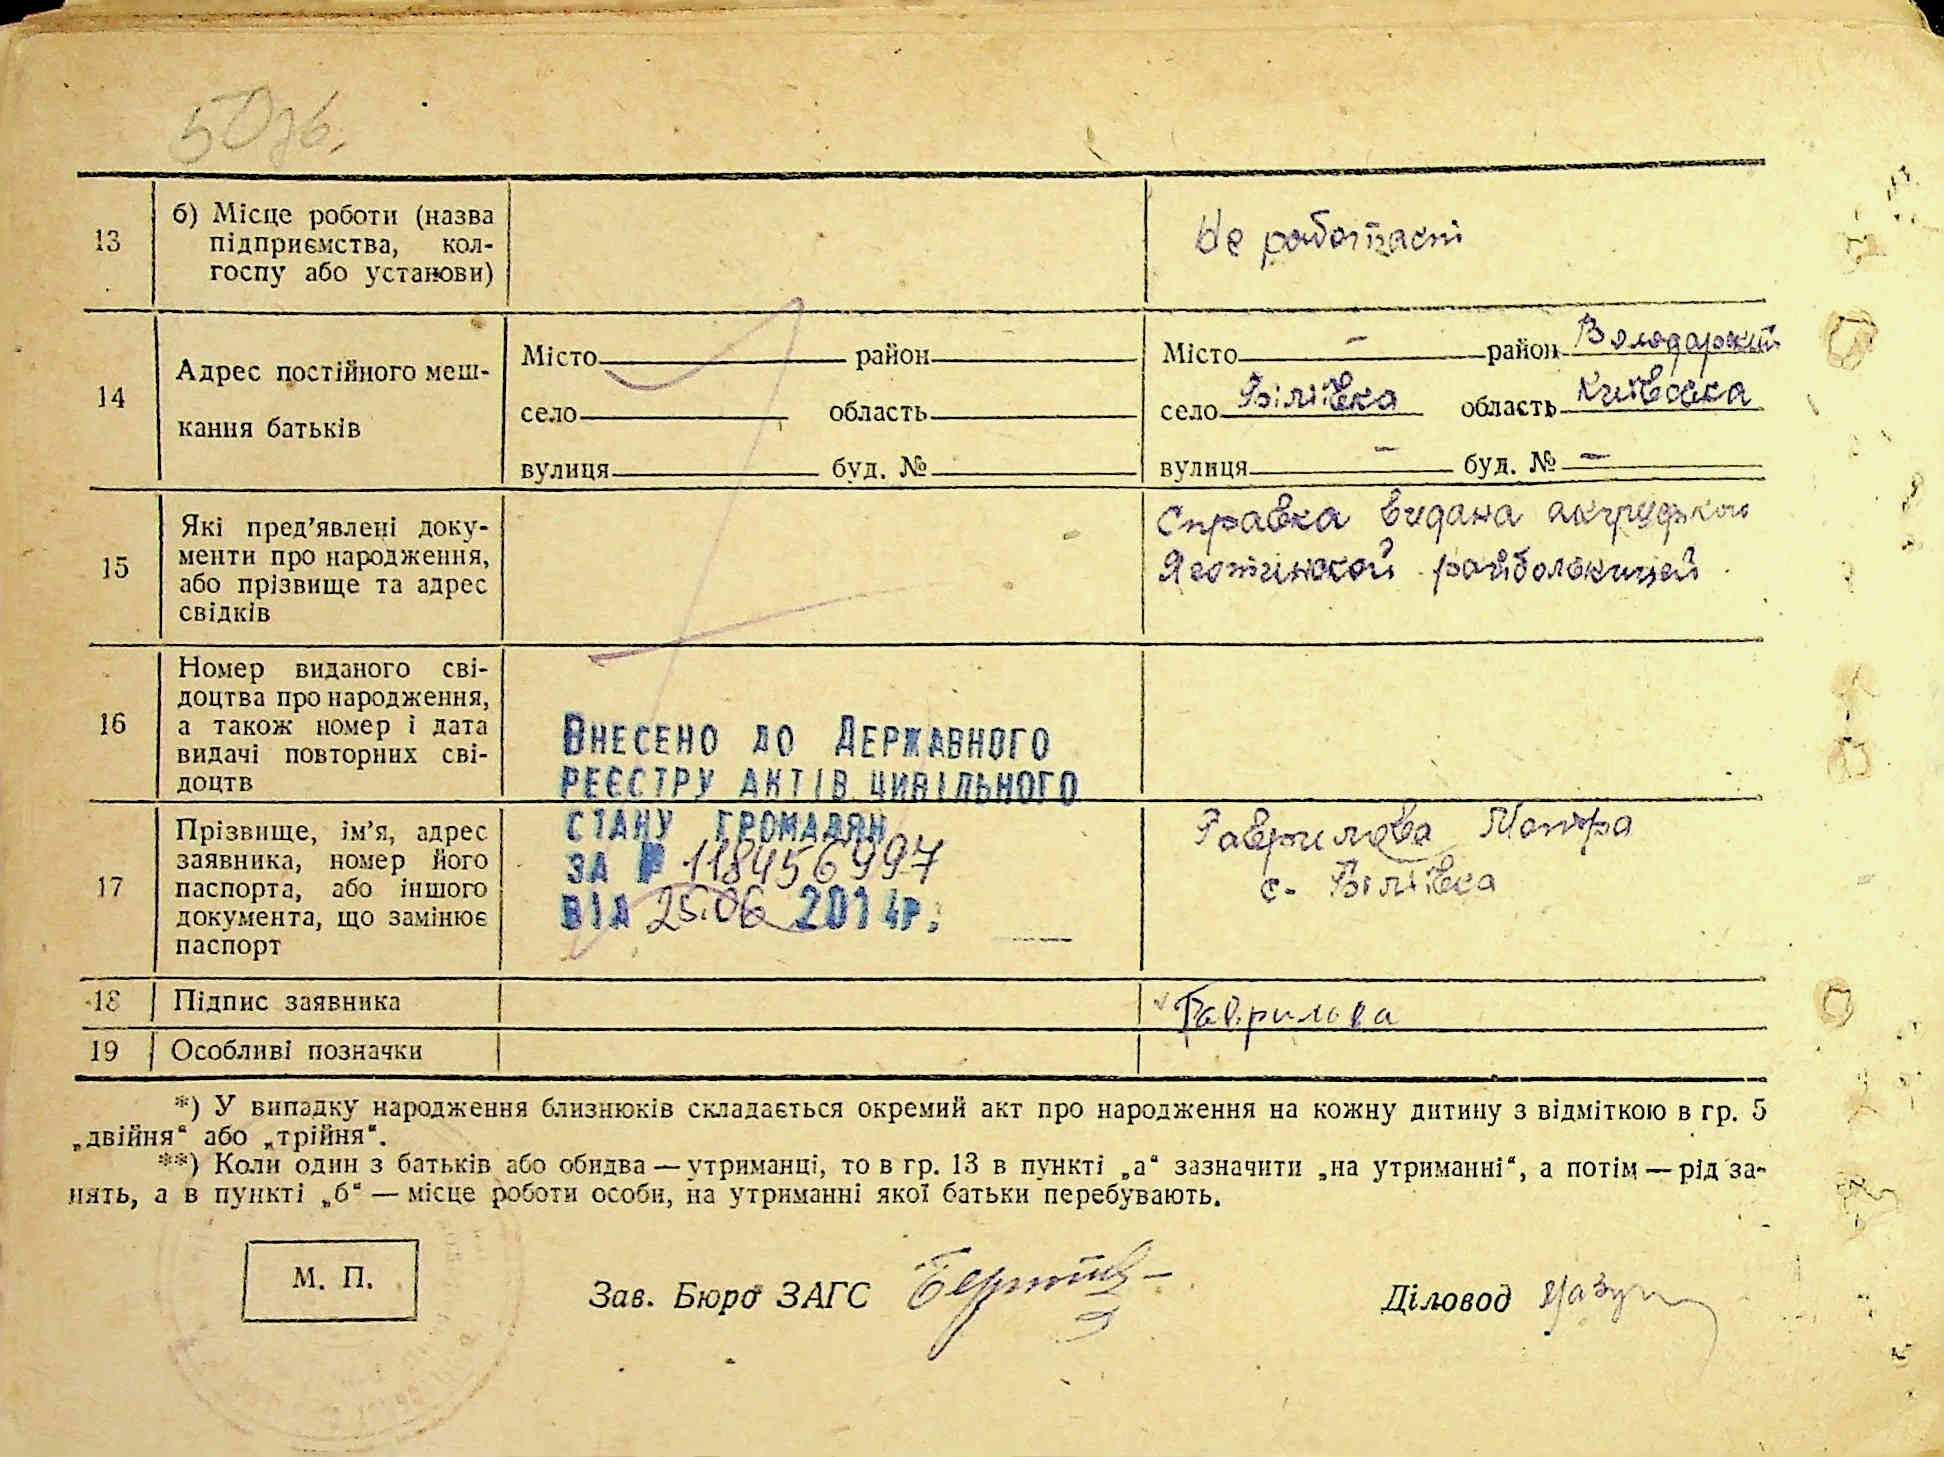 50зв.
13
б) Місце роботи (назва
підприємства, кол-
госпу або установи)
не работает
14
Адрес постійного меш-
кання батьків
Місто район
село область
вулиця буд. №
Місто – район Володарский
село Біліївка область Київська
вулиця – буд. № –
15
Які пред’явлені доку-
менти про народження,
або прізвище та адрес
свідків
Справка видана
райбольницей
16
Номер виданого сві-
доцтва про народження,
а також номер і дата
видачі повторних сві-
доцтв
Внесено до Державного
реєстру актів цивільного
стану громадян
за № 118456997
від 25.06 2014р.
17
Прізвище, ім’я, адрес
заявника, номер його
паспорта, або іншого
документа, що замінює
паспорт
Гаврилова
с. Біліївка
18
Підпис заявника
Гаврилова
19
Особливі позначки
*) У випадку народження близнюків складається окремий акт про народження на кожну дитину з відміткою в гр. 5
„двійня“ або „трійня“.
**) Коли один з батьків або обидва — утриманці, то в гр. 13 в пункті „а“ зазначити „на утриманні“, а потім — рід за-
нять, а в пункті „б“ — місце роботи особи, на утриманні якої батьки перебувають.
М. П.
Зав. Бюро ЗАГС
Діловод